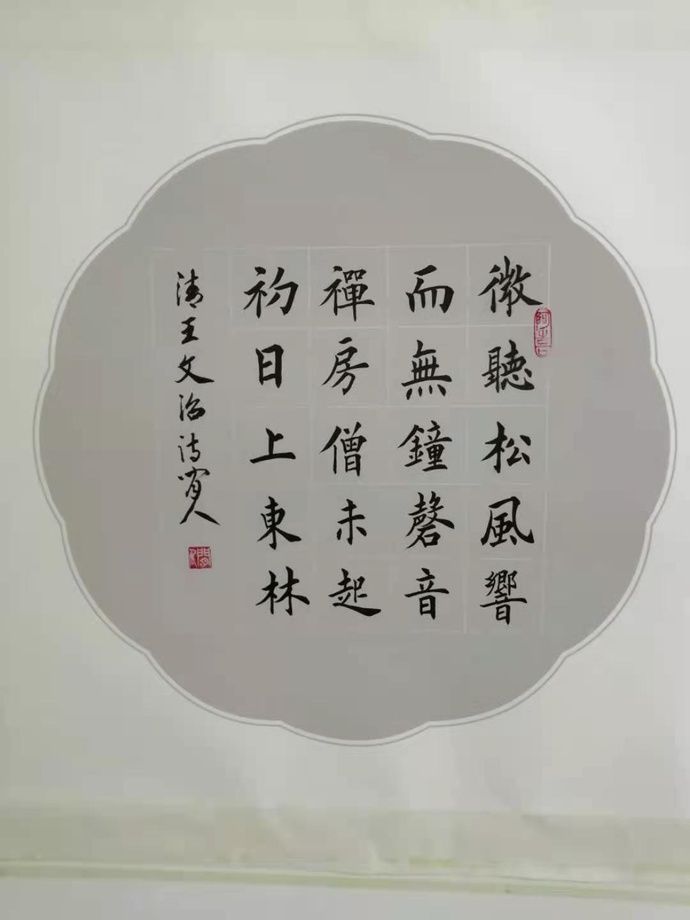 微聽松風響
而無鐘磬音
禪房僧未起
初日上東林
清王文治诗